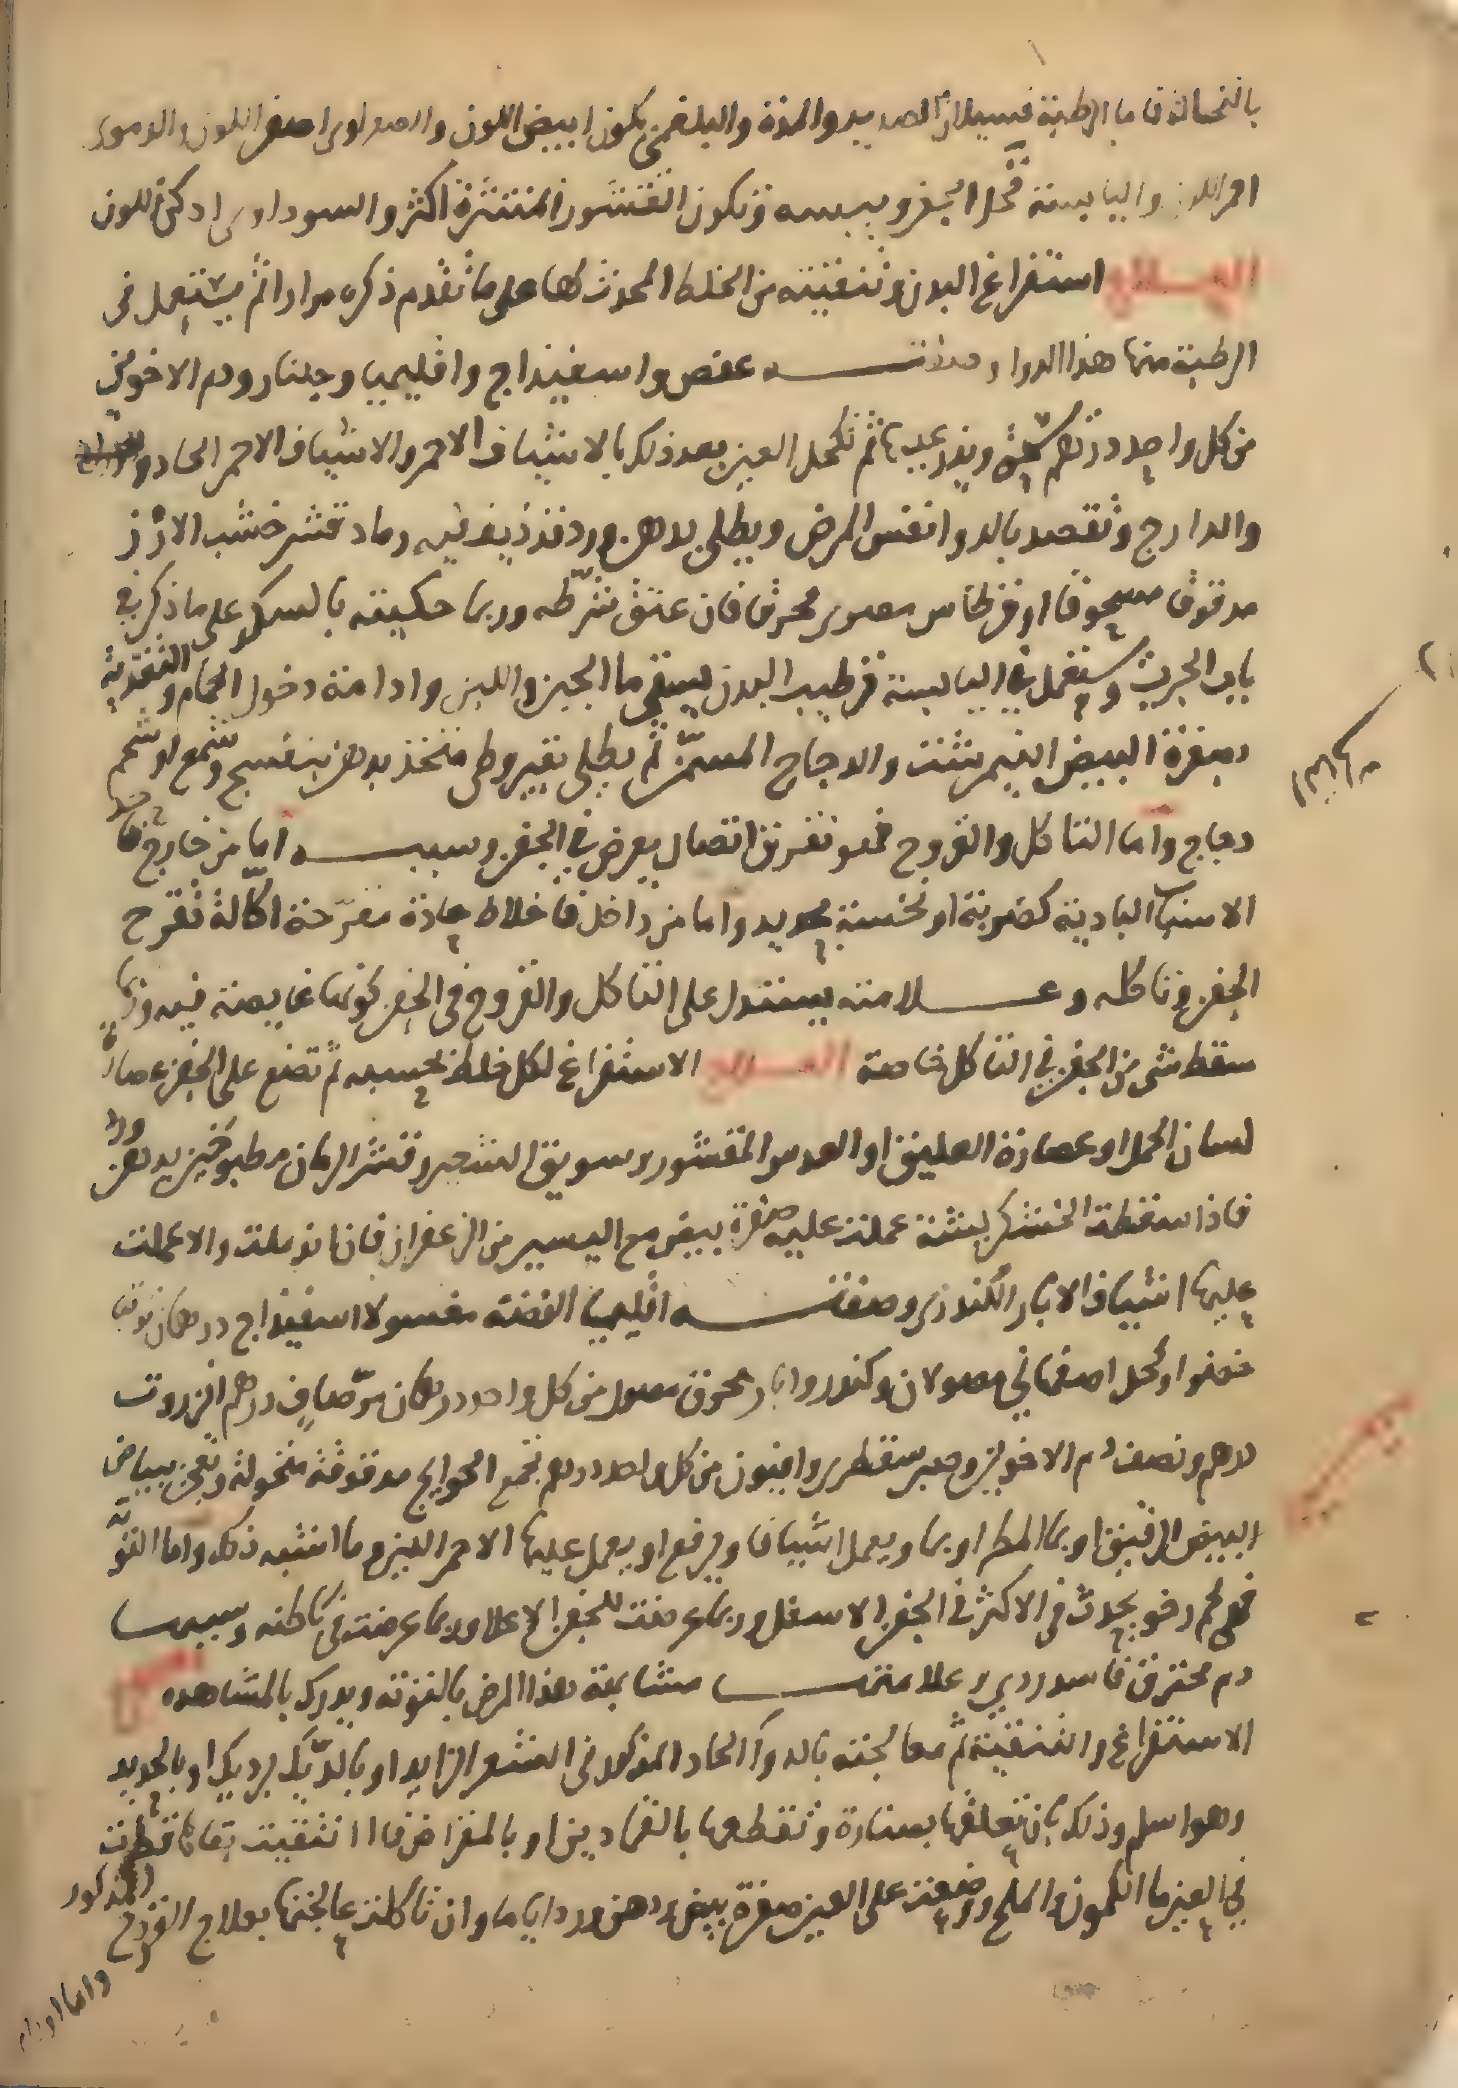 بالنخالة فاما الرطبة فسيلان الصديد والمدة والبلغمى يكون ابيض اللون والصفراوى اصفر اللون والدموى
احمر اللون واليابسة قحل الجفن ويبسه وتكون القشور المنتثرة اكثر والسوداوى ادكن اللون
العلاج استفراغ البدن وتنقيته من الخلط المحدث لها على ما تقدم ذكره مرارا ثم يستعمل فى
الرطبة منها هذا الدواء وصفته عفص واسفيذاج واقليميا وجلنار ودم الاخوين
من كل واحد درهم ويذر عليها ثم تكحل العين بعد ذلك بالاشياف الاحمر والاشياف الاحمر الحاد
والدارج وتقصد بالدوا نفس المرض ويطلى بدهن ورد قد ذيف فيه رماد قشر خشب الارز
مدقوقا مسحوقا او قرطاس مصرى محرق فان عتق شرطه وربما حكيته بالسكر على ما ذكر فى
باب الجرب وتستعمل فى اليابسة ترطيب البدن بسقى ما الجبن واللبن وادامة دخول الحمام والتغذية
بصفرة البيض النيمرشت والدجاج المسمن ثم يطلى بقيروطى متخذ بدهن بنفسج وشمع او شحم
دجاج واما التاكل والقروح فهو تفرق اتصال يعرض فى الجفن وسببه اما من خارج فا
الاسباب البادية كضربة او نخسة بحديد واما من داخل فاخلاط حادة مقرحة اكالة تقرح
الجفن وتاكله وعلامته يستدل على التاكل والقروح فى الجفن كونها غايصة فيه وربما
سقط شى من الجفن فى التاكل خاصة العلاج الاستفراغ لكل خلط بحسبه ثم تضع على الجفن عصارة
لسان الحمل او عصارة العليق او العدس المقشور وسويق الشعير وقشر الرمان مطبوخين بدهن ورد
فاذا سقطت الخشكريشة عملت عليه صفرة بيض مع اليسير من الزعفران فان اندملت والا عملت
عليها اشياف الابار الكندرى وصفته اقليميا الفضة مغسولا اسفيذاج درهمان توتيا
خضرا وكحل اصفهانى مغسولان وكندر وابار محرق مغسول من كل واحد درهمان مر صاف درهم انزروت
درهم ونصف دم الاخوين وصبر سقطرى وافيون من كل واحد درهم تجمع الحوايج مدقوقة منخولة وتعجن ببياض
البيض الرقيق او بما المطر او بما ويعمل اشيافا ويرفع او يعمل عليها الاحمر اللين وما اشبه ذلك واما التوتة
فهى لحم رخو يحدث فى الاكثر فى الجفن الاسفل وربما عرضت للجفن الاعلا وربما عرضت فى باطنه وسببها
دم محترق فاسد ردى وعلامتها مشابهة هذا المرض بالتوتة ويدرك بالمشاهده
الاستفراغ والتنقية ثم معالجته بالدوا الحاد المذكور فى الشعر الزايد او بالديك برديك او بالحديد
وهو اسلم وذلك بان تعلقها بصنارة وتقطعها بالقمادين او بالمقراض فاذا تنقيت بقاياها قطرت
فى العين ما الكمون والملح ووضعت على العين صفرة بيض ودهن ورد اياما وان تاكلت عالجتها بعلاج القروح المذكور
واما اورام